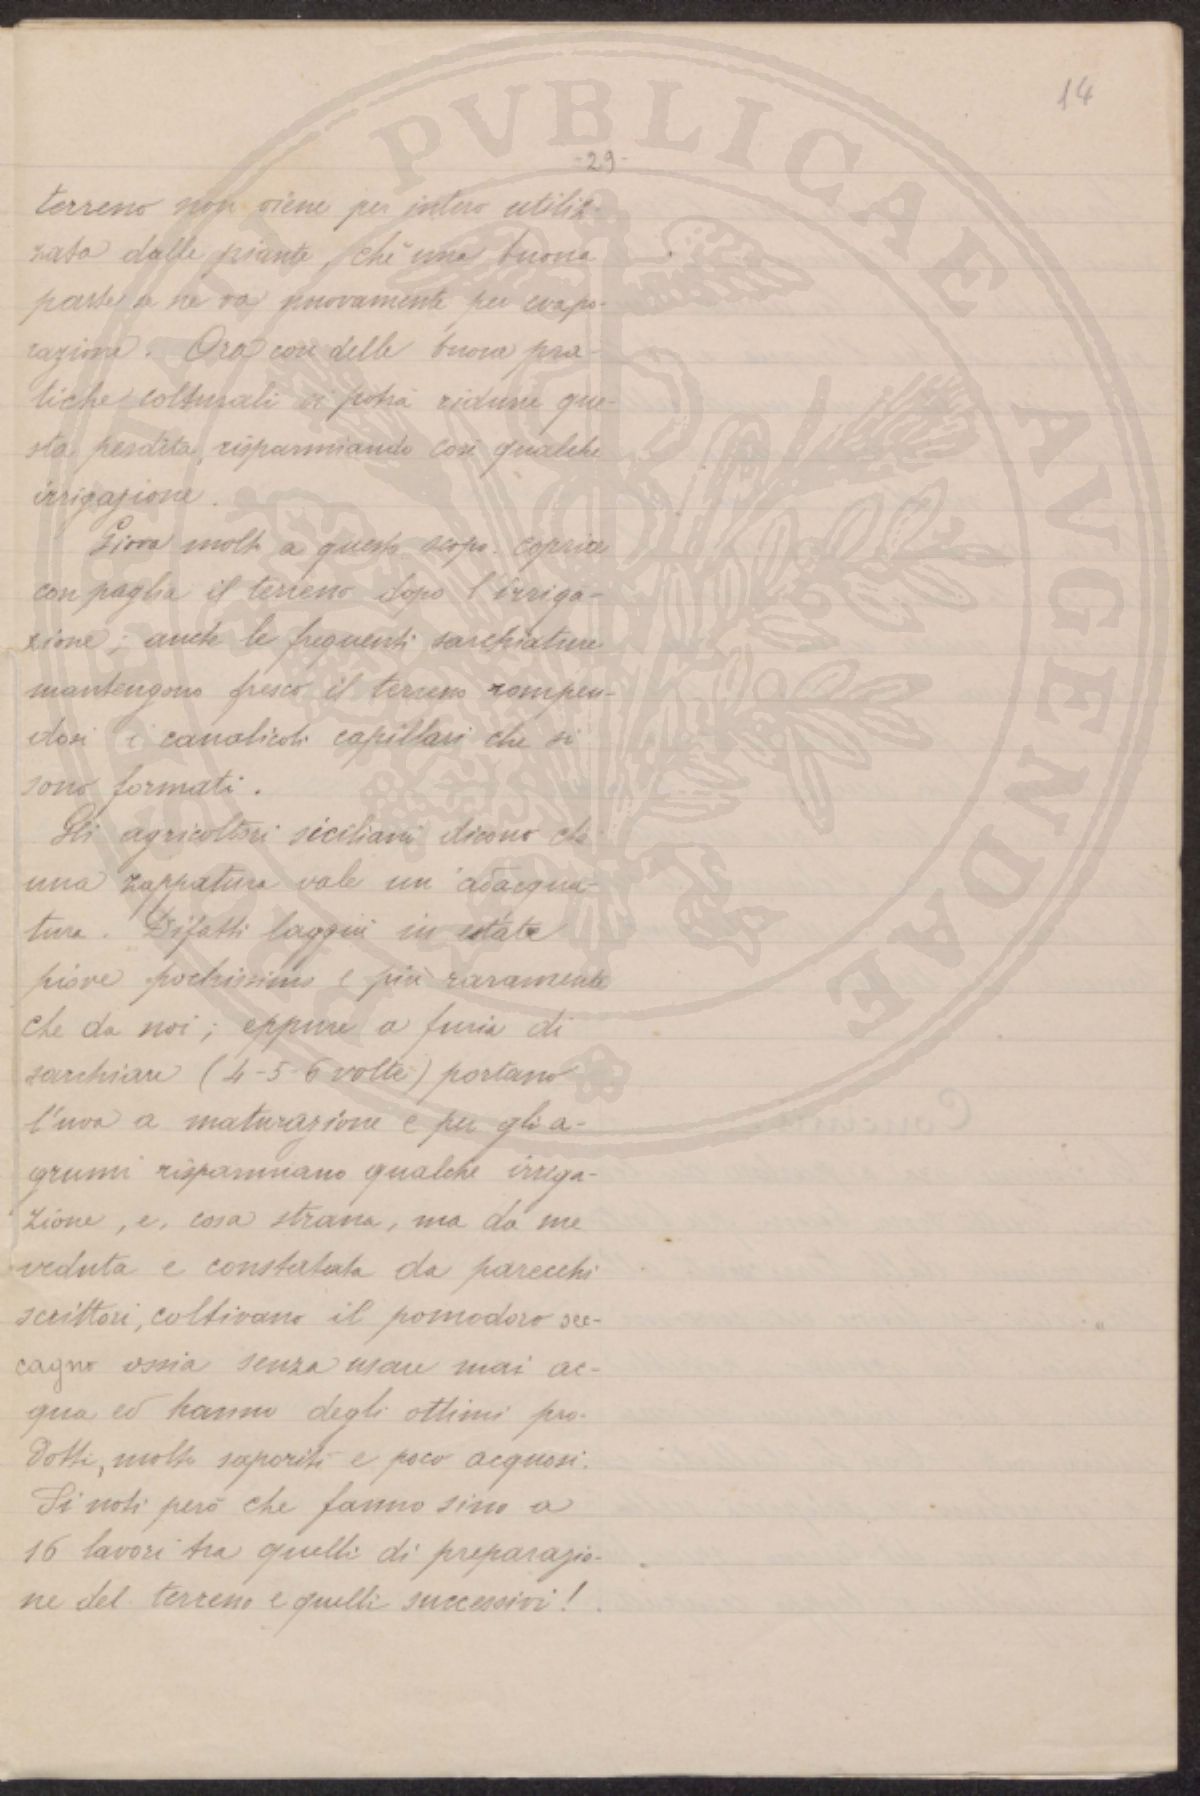 14
-29-
terreno non viene per intero utiliz-
zata dalle piante, chè una buona
parte se ne va nuovamente per evapo-
razione. Ora con delle buone pra-
tiche colturali si potrà ridurre que-
sta perdita, risparmiando così qualche
irrigazione.
Giova molto a questo scopo coprire
con paglia il terreno dopo l'irriga-
zione; anche le frequenti sarchiature
mantengono fresco il terreno rompen-
dosi i canalicoli capillari che si
sono formati.
Gli agricoltori siciliani dicono che
una zappatura vale un'adacqua-
tura. Difatti laggiù in estate
piove pochissimo e più raramente
che da noi; eppure a furia di
sarchiare (4-5-6 volte) portano
l'uva a maturazione e per gli a-
grumi risparmiano qualche irriga-
zione, e, cosa strana, ma da me
veduta e constatata da parecchi
scrittori, coltivano il pomodoro sec-
cagno ossia senza usare mai ac-
qua ed hanno degli ottimi pro-
dotti, molto saporiti e poco acquosi.
Si noti però che fanno sino a
16 lavori tra quelli di preparazio-
ne del terreno e quelli successivi!
PVBLICAE AVGENDAE